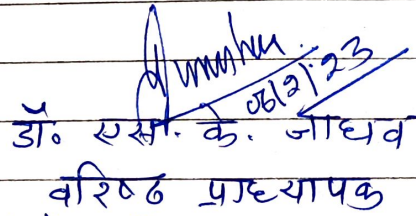 06/2/23
डॉ. एस. के. जाधव
वरिष्ठ प्राध्यापक